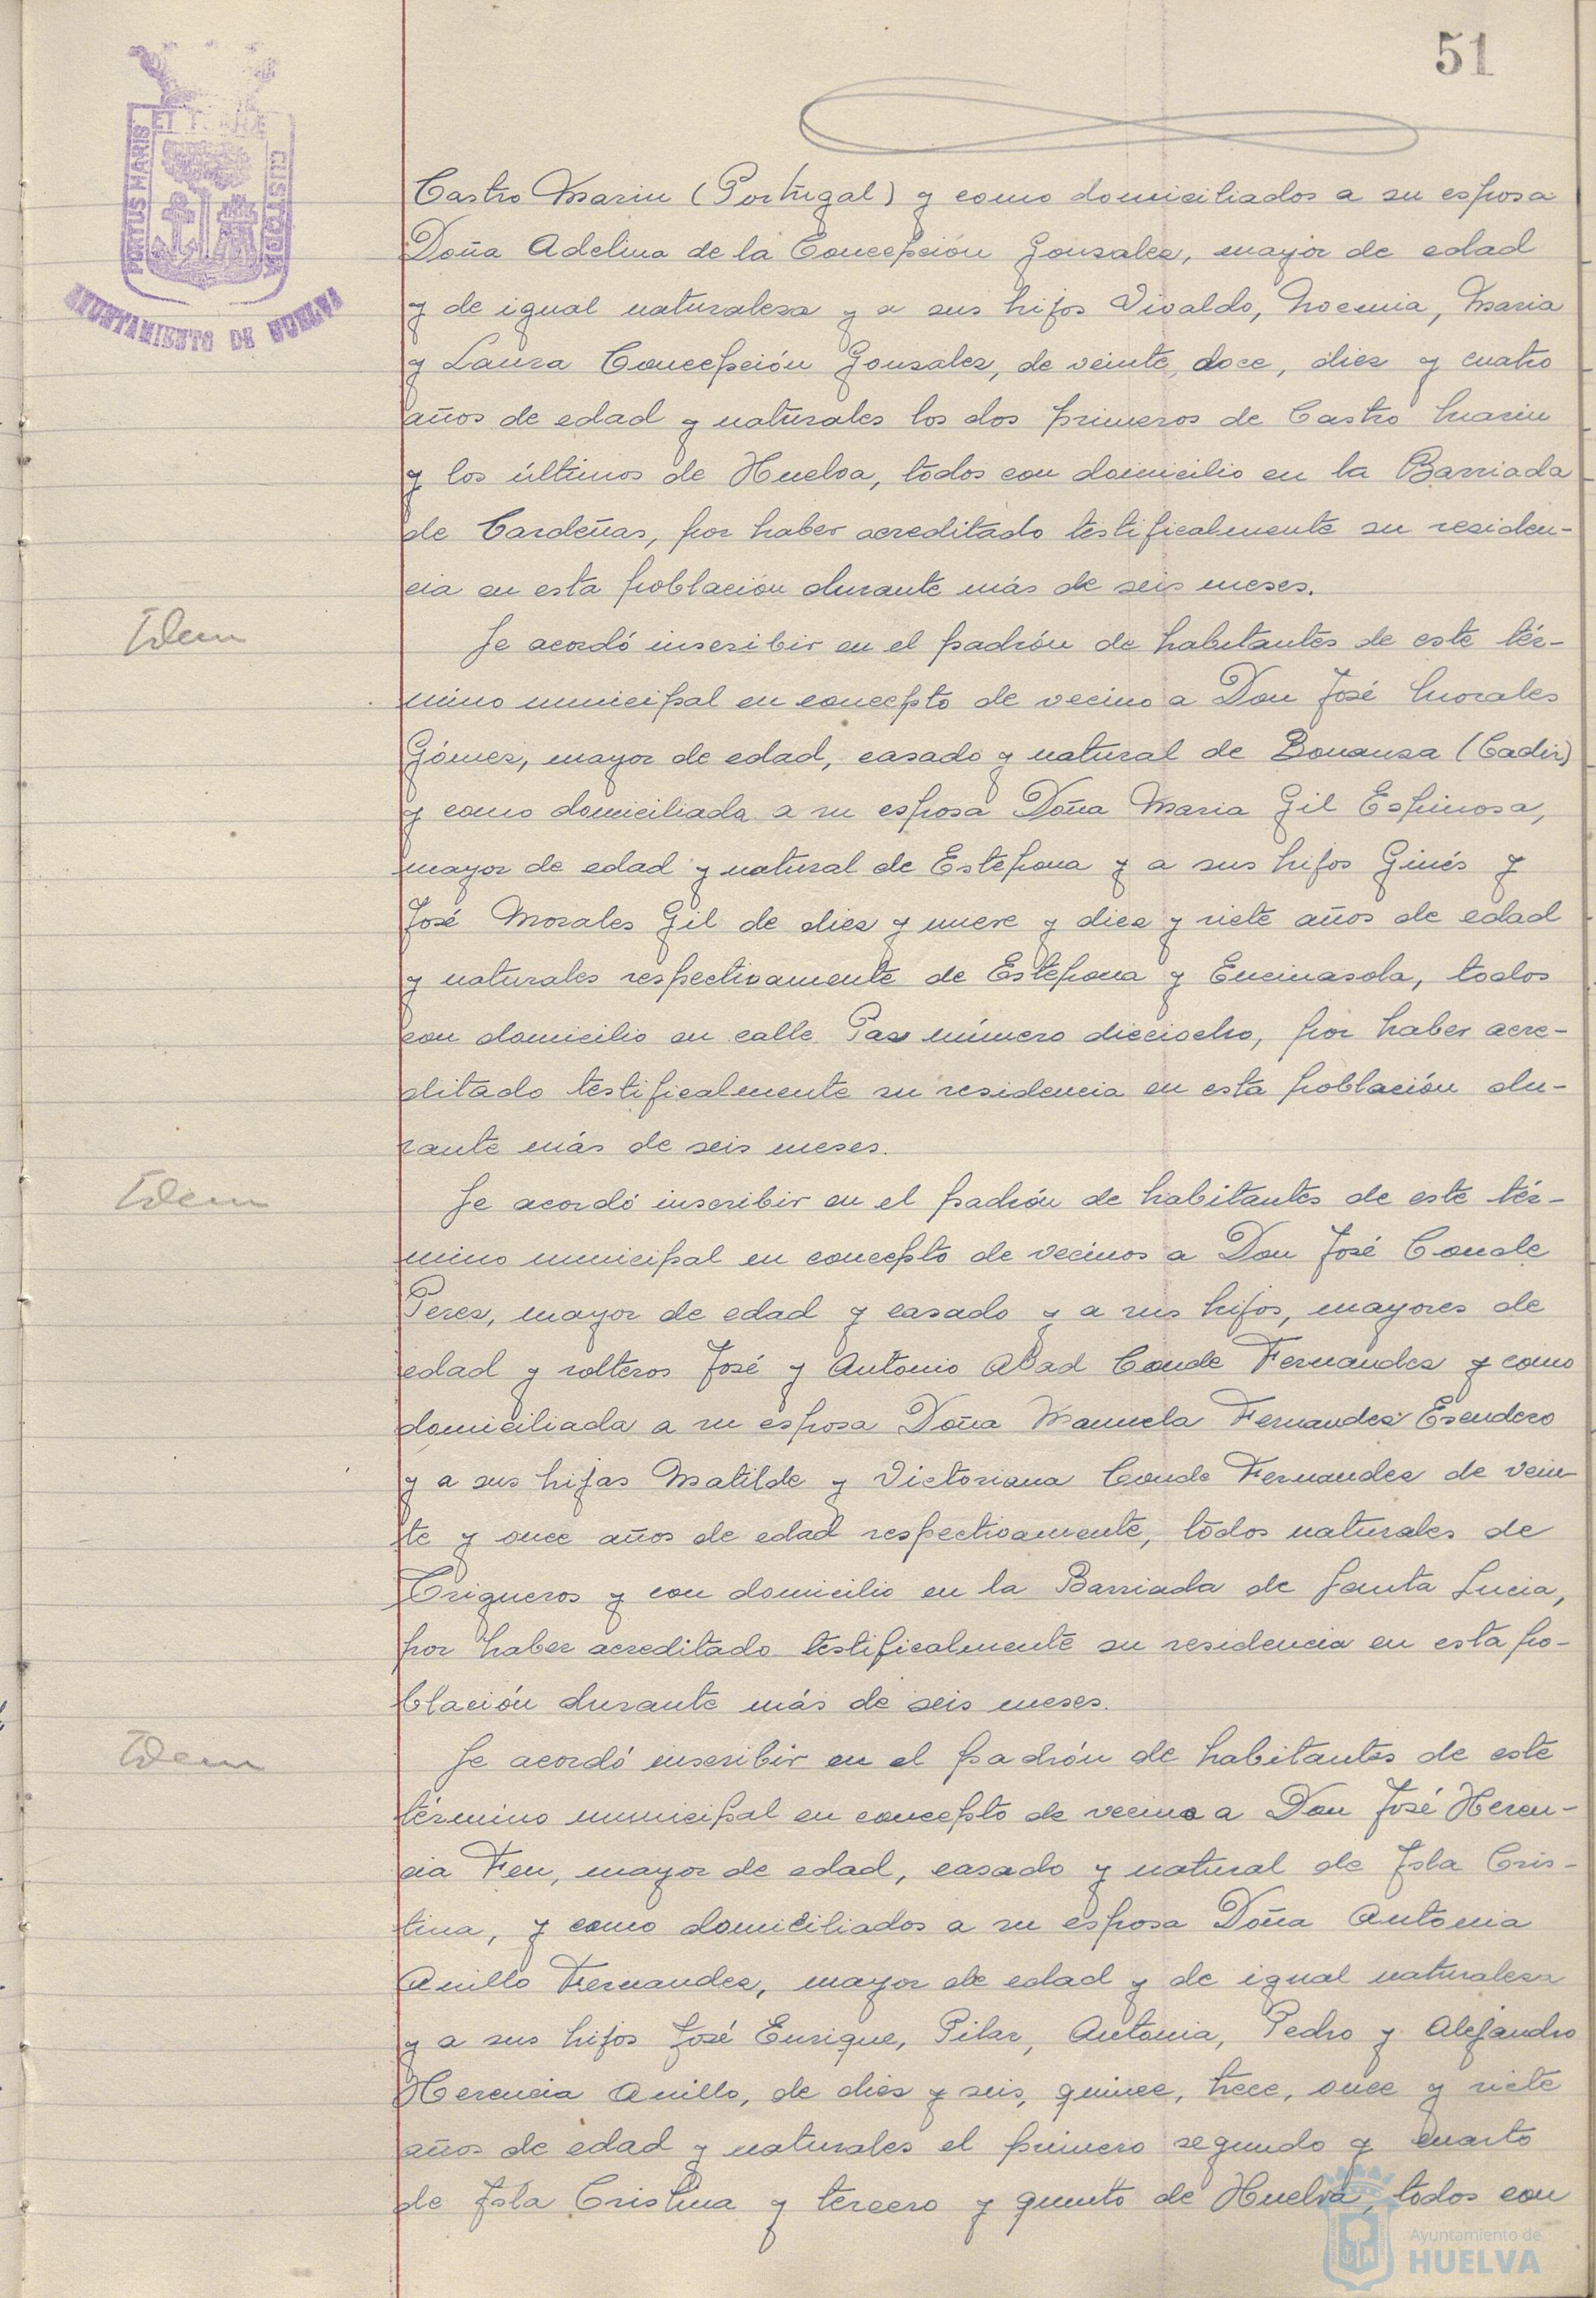 51
ET T. ARCE
PORTUS MARIS
CUSTODIA
AYUNTAMIENTO DE HUELVA
Castro Marin (Portugal) y como domiciliados a su esposa
Doña Adelina de la Concepción Gonsalez, mayor de edad
y de igual naturaleza y a sus hijos Vivaldo, Noemia, Maria
y Laura Concepción Gonsalez, de veinte, doce, diez y cuatro
años de edad y naturales los dos primeros de Castro Marin
y los últimos de Huelva, todos con domicilio en la Barriada
de Cardeñas, por haber acreditado testificalmente su residen-
cia en esta población durante más de seis meses.
Idem
Se acordó inscribir en el padrón de habitantes de este tér-
mino municipal en concepto de vecino a Don José Morales
Gómez, mayor de edad, casado y natural de Bonanza (Cadiz)
y como domiciliada a su esposa Doña Maria Gil Espinosa,
mayor de edad y natural de Estepona y a sus hijos Ginés y
José Morales Gil de diez y nueve y diez y siete años de edad
y naturales respectivamente de Estepona y Encinasola, todos
con domicilio en calle Paz número dieciocho, por haber acre-
ditado testificalmente su residencia en esta población du-
rante más de seis meses.
Idem
Se acordó inscribir en el padrón de habitantes de este tér-
mino municipal en concepto de vecinos a Don José Conde
Perez, mayor de edad y casado y a sus hijos, mayores de
edad y solteros José y Antonio Abad Conde Fernandez y como
domiciliada a su esposa Doña Manuela Fernandez Escudero
y a sus hijas Matilde y Victoriana Conde Fernandez de vein-
te y once años de edad respectivamente, todos naturales de
Trigueros y con domicilio en la Barriada de Santa Lucia,
por haber acreditado testificalmente su residencia en esta po-
blación durante más de seis meses.
Idem
Se acordó inscribir en el padrón de habitantes de este
término municipal en concepto de vecino a Don José Heren-
cia Feu, mayor de edad, casado y natural de Isla Cris-
tina, y como domiciliados a su esposa Doña Antonia
Anillo Fernandez, mayor de edad y de igual naturaleza
y a sus hijos José Enrique, Pilar, Antonia, Pedro y Alejandro
Herencia Anillo, de diez y seis, quince, trece, once y siete
años de edad y naturales el primero segundo y cuarto
de Isla Cristina y tercero y quinto de Huelva, todos con
Ayuntamiento de
HUELVA